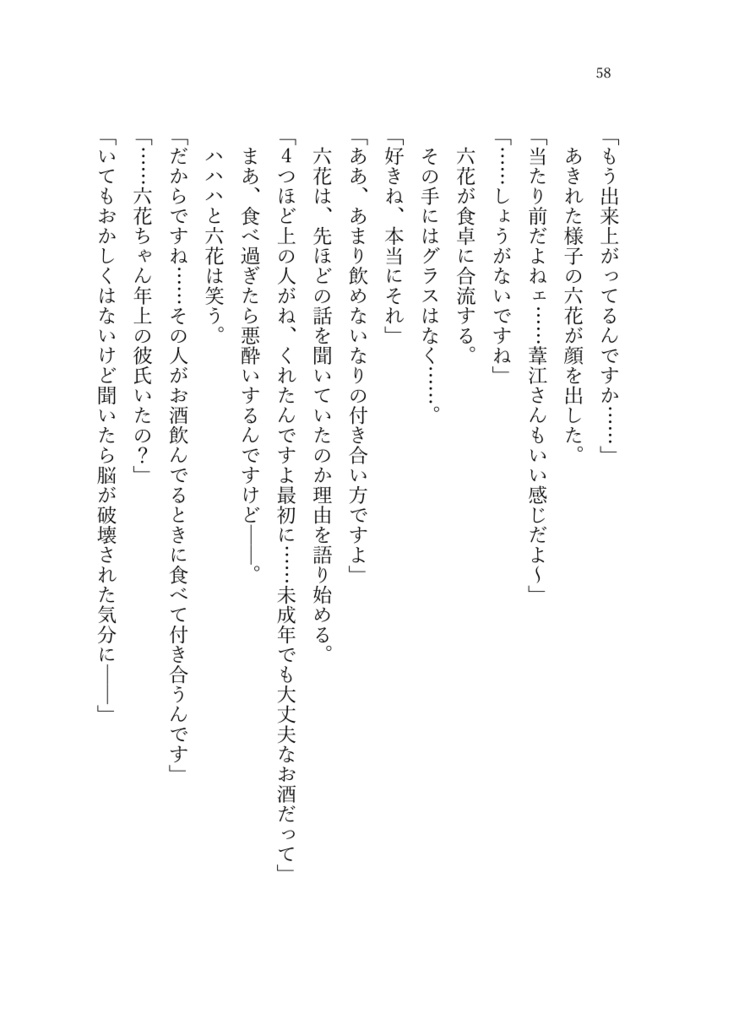 58
「もう出来上がってるんですか……」
あきれた様子の六花が顔を出した。
「当たり前だよねェ……葦江さんもいい感じだよ～」
「……しょうがないですね」
六花が食卓に合流する。
その手にはグラスはなく……。
「好きね、本当にそれ」
「ああ、あまり飲めないなりの付き合い方ですよ」
六花は、先ほどの話を聞いていたのか理由を語り始める。
「４つほど上の人がね、くれたんですよ最初に……未成年でも大丈夫なお酒だって」
まあ、食べ過ぎたら悪酔いするんですけど――。
ハハハと六花は笑う。
「だからですね……その人がお酒飲んでるときに食べて付き合うんです」
「……六花ちゃん年上の彼氏いたの？」
「いてもおかしくはないけど聞いたら脳が破壊された気分に――」